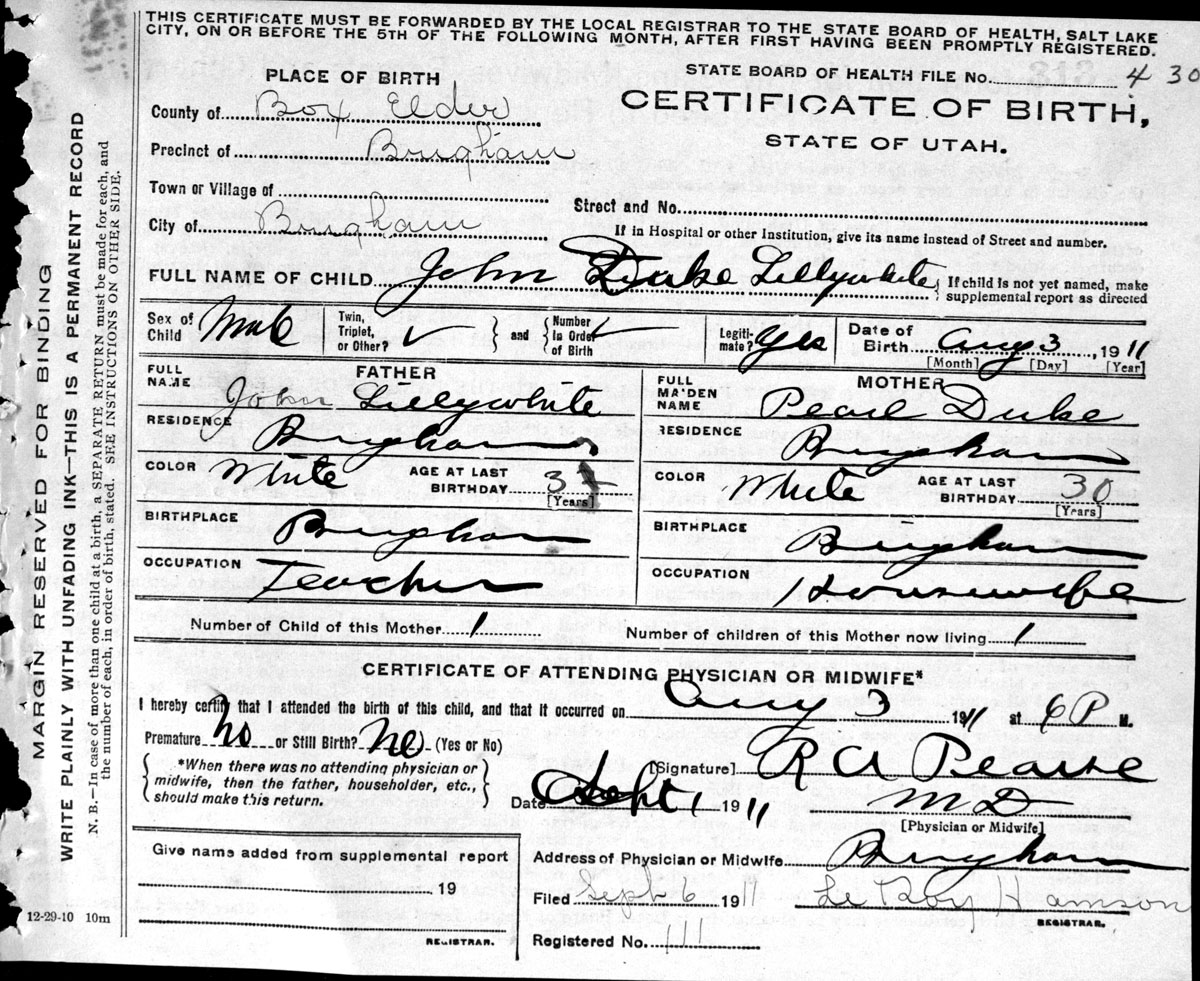 THIS CERTIFICATE MUST BE FORWARDED BY THE LOCAL REGISTRAR TO THE STATE BOARD OF HEALTH, SALT LAKE
CITY, ON OR BEFORE THE 5TH OF THE FOLLOWING MONTH, AFTER FIRST HAVING BEEN PROMPTLY REGISTERED.
MARGIN RESERVED FOR BINDING
WRITE PLAINLY WITH UNFADING INK—THIS IS A PERMANENT RECORD
N. B.—In case of more than one child at a birth, a SEPARATE RETURN must be made for each, and
the number of each, in order of birth, stated. SEE INSTRUCTIONS ON OTHER SIDE.
STATE BOARD OF HEALTH FILE No. 430
CERTIFICATE OF BIRTH,
STATE OF UTAH.
PLACE OF BIRTH
County of Box Elder
Precinct of Brigham
Town or Village of
City of Brigham
Street and No.
If in Hospital or other Institution, give its name instead of Street and number.
FULL NAME OF CHILD John Duke Lillywhite { If child is not yet named, make
supplemental report as directed
Sex of Child Male
Twin, Triplet, or Other? ✓ } and { Number in Order of Birth ✓
Legitimate? Yes
Date of Birth Aug 3, 1911
[Month] [Day] [Year]
FATHER
FULL NAME John Lillywhite
RESIDENCE Brigham
COLOR White AGE AT LAST BIRTHDAY 37
[Years]
BIRTHPLACE Brigham
OCCUPATION Teacher
MOTHER
FULL MAIDEN NAME Pearl Duke
RESIDENCE Brigham
COLOR White AGE AT LAST BIRTHDAY 30
[Years]
BIRTHPLACE Brigham
OCCUPATION Housewife
Number of Child of this Mother 1 Number of children of this Mother now living 1
CERTIFICATE OF ATTENDING PHYSICIAN OR MIDWIFE*
I hereby certify that I attended the birth of this child, and that it occurred on Aug 3 1911 at 6 P M.
Premature No or Still Birth? No (Yes or No)
{ *When there was no attending physician or
midwife, then the father, householder, etc.,
should make this return. }
[Signature] R A Pearse
Date Sept 1 1911 M D
[Physician or Midwife]
Give name added from supplemental report
19
REGISTRAR.
Address of Physician or Midwife Brigham
Filed Sept 6 1911 Le Roy H amson
REGISTRAR.
Registered No. 111
12-29-10 10m